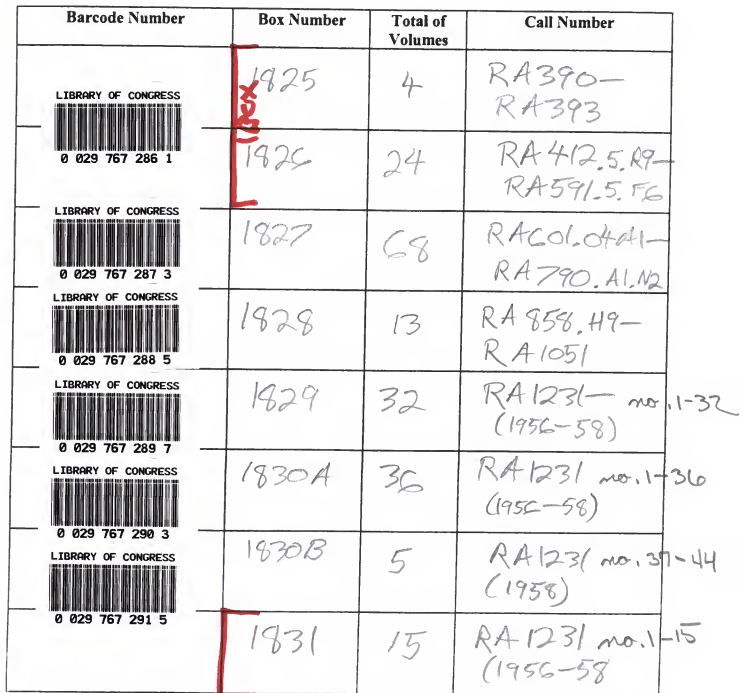 Barcode Number Box Number Total of Volumes Call Number
LIBRARY OF CONGRESS
0 029 767 286 1
Box
1825 4 RA390—
RA393
1826 24 RA412.5.R9—
RA591.5.F6
LIBRARY OF CONGRESS
0 029 767 287 3
1827 68 RA601.04A1—
RA790.A1.N2
LIBRARY OF CONGRESS
0 029 767 288 5
1828 13 RA858.H9—
RA1051
LIBRARY OF CONGRESS
0 029 767 289 7
1829 32 RA1231— no. 1-32
(1956-58)
LIBRARY OF CONGRESS
0 029 767 290 3
1830A 36 RA1231 no. 1-36
(1956-58)
LIBRARY OF CONGRESS
0 029 767 291 5
1830B 5 RA1231 no. 37-44
(1958)
1831 15 RA1231 no. 1-15
(1956-58